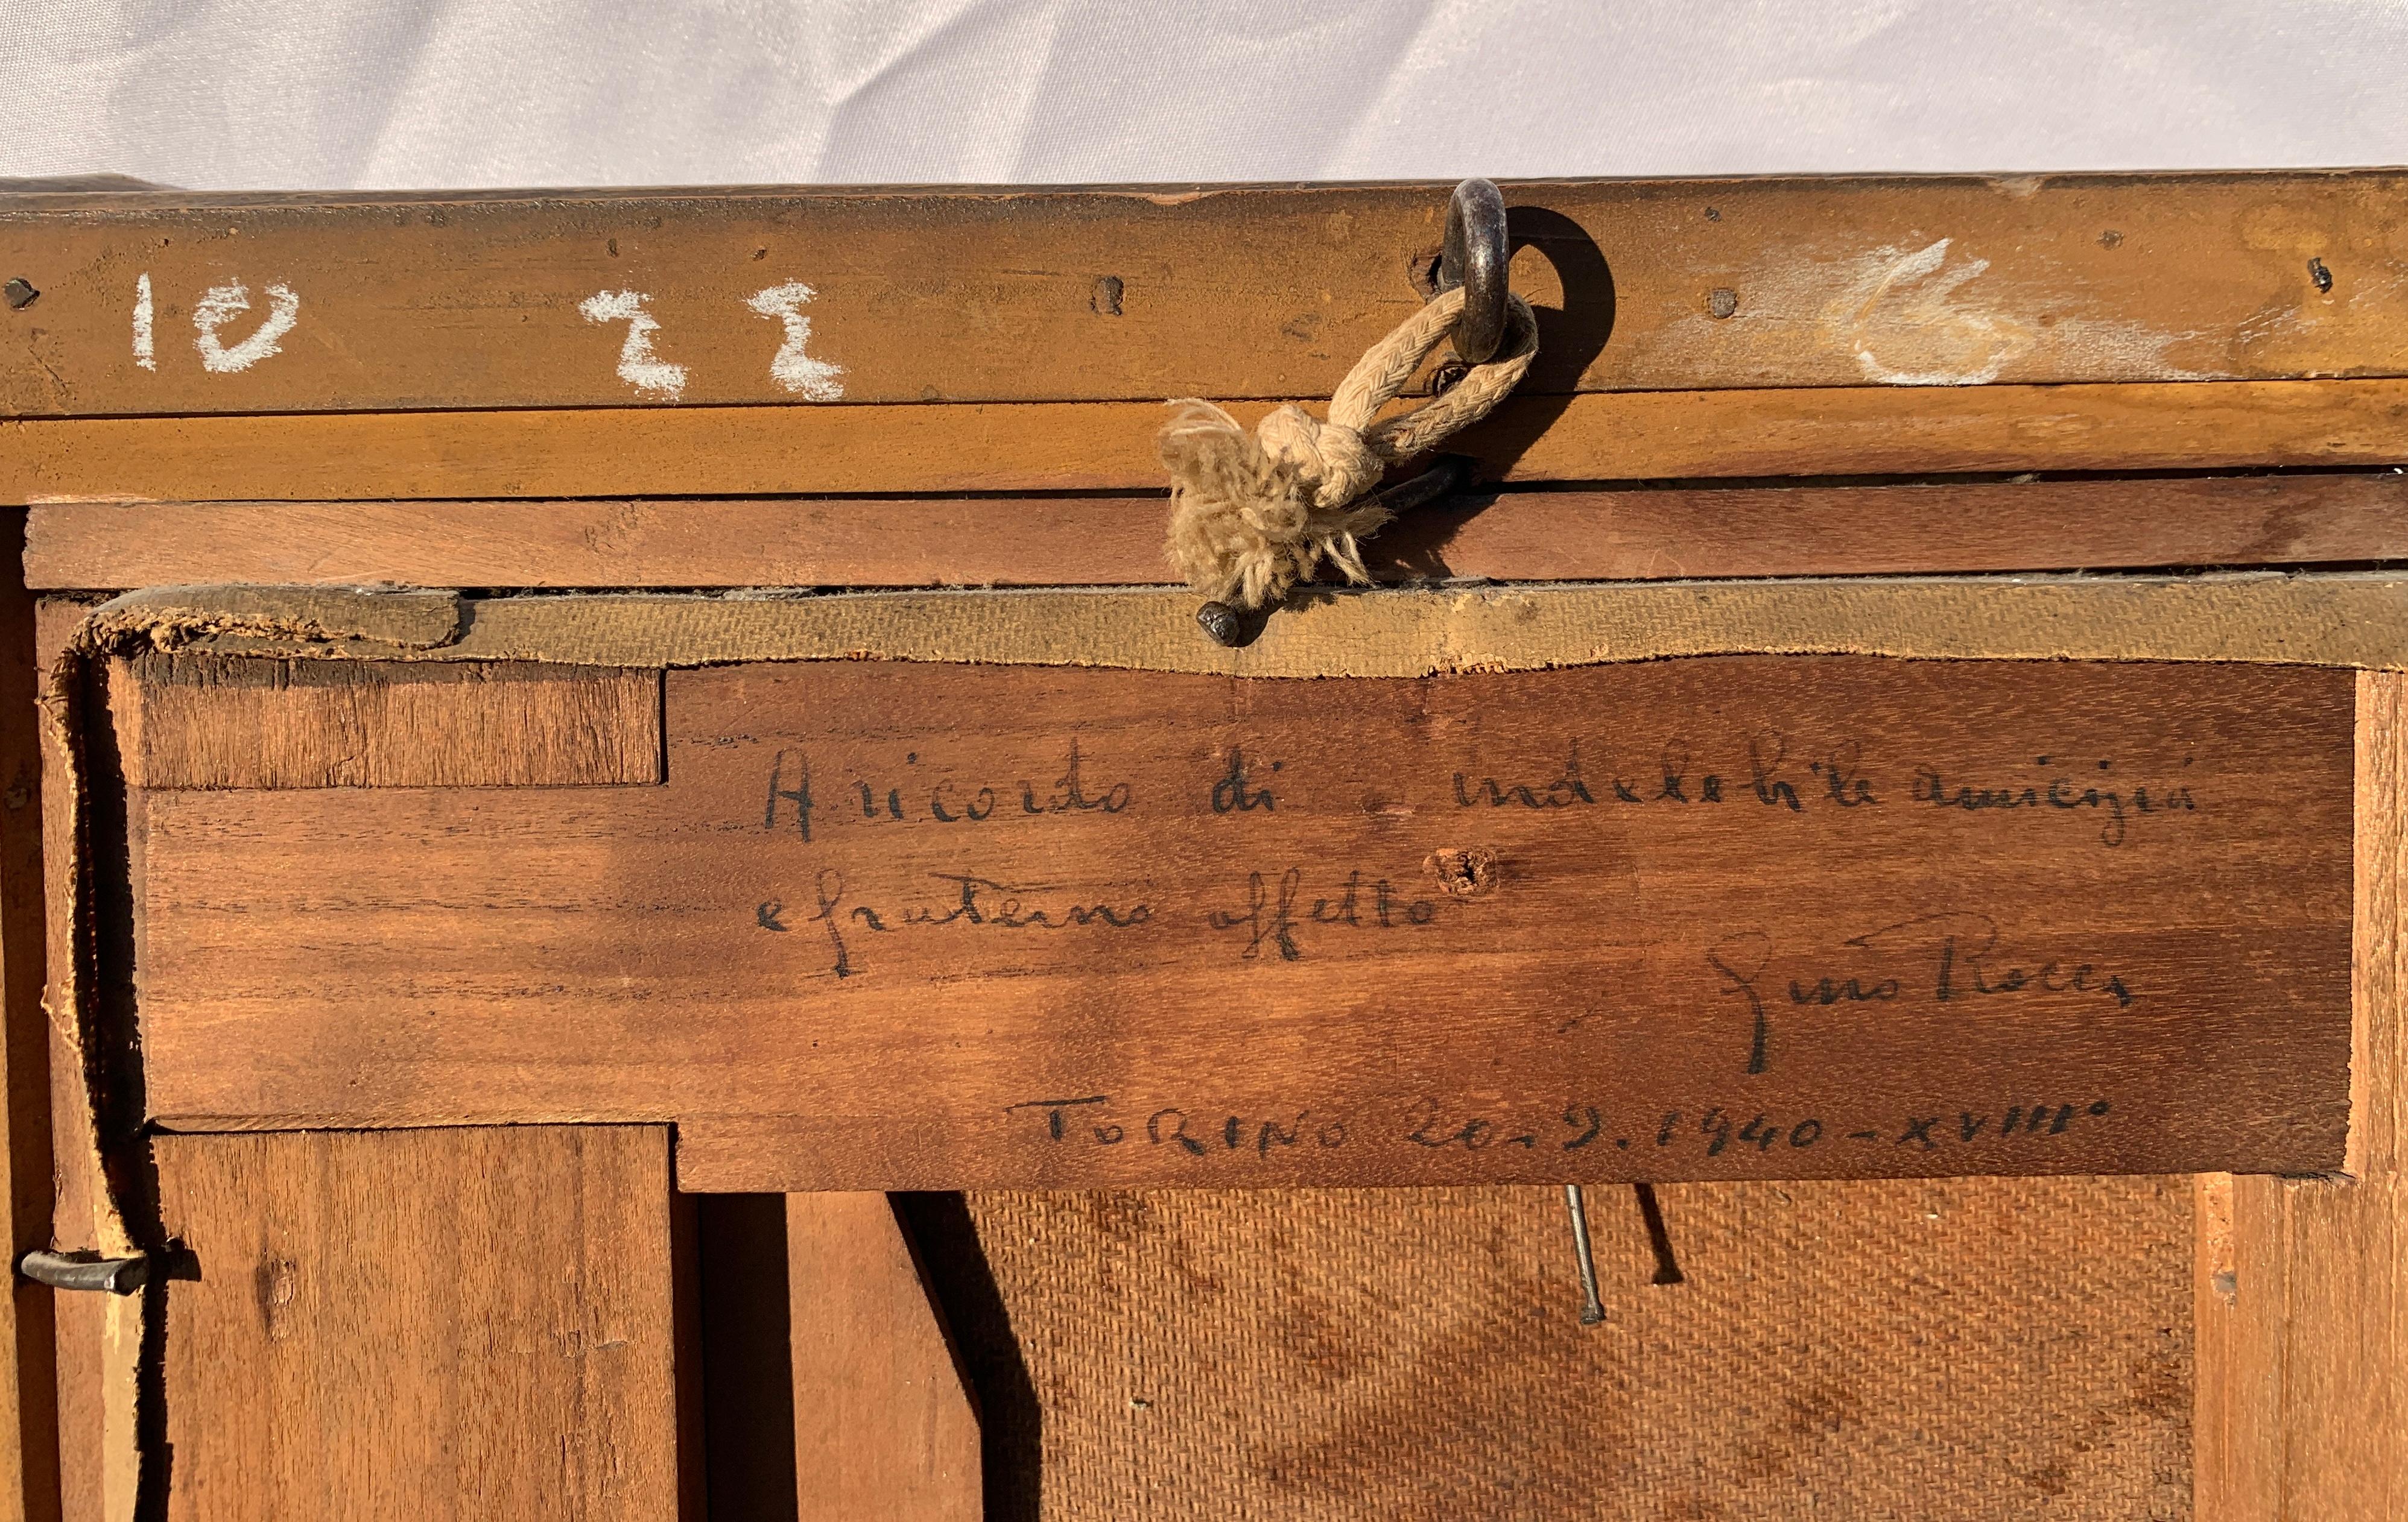 10 22 6
A ricordo di indelebile amicizia
e fraterno affetto
Gino Rocca
TORINO 20.9.1940 - XVIII°